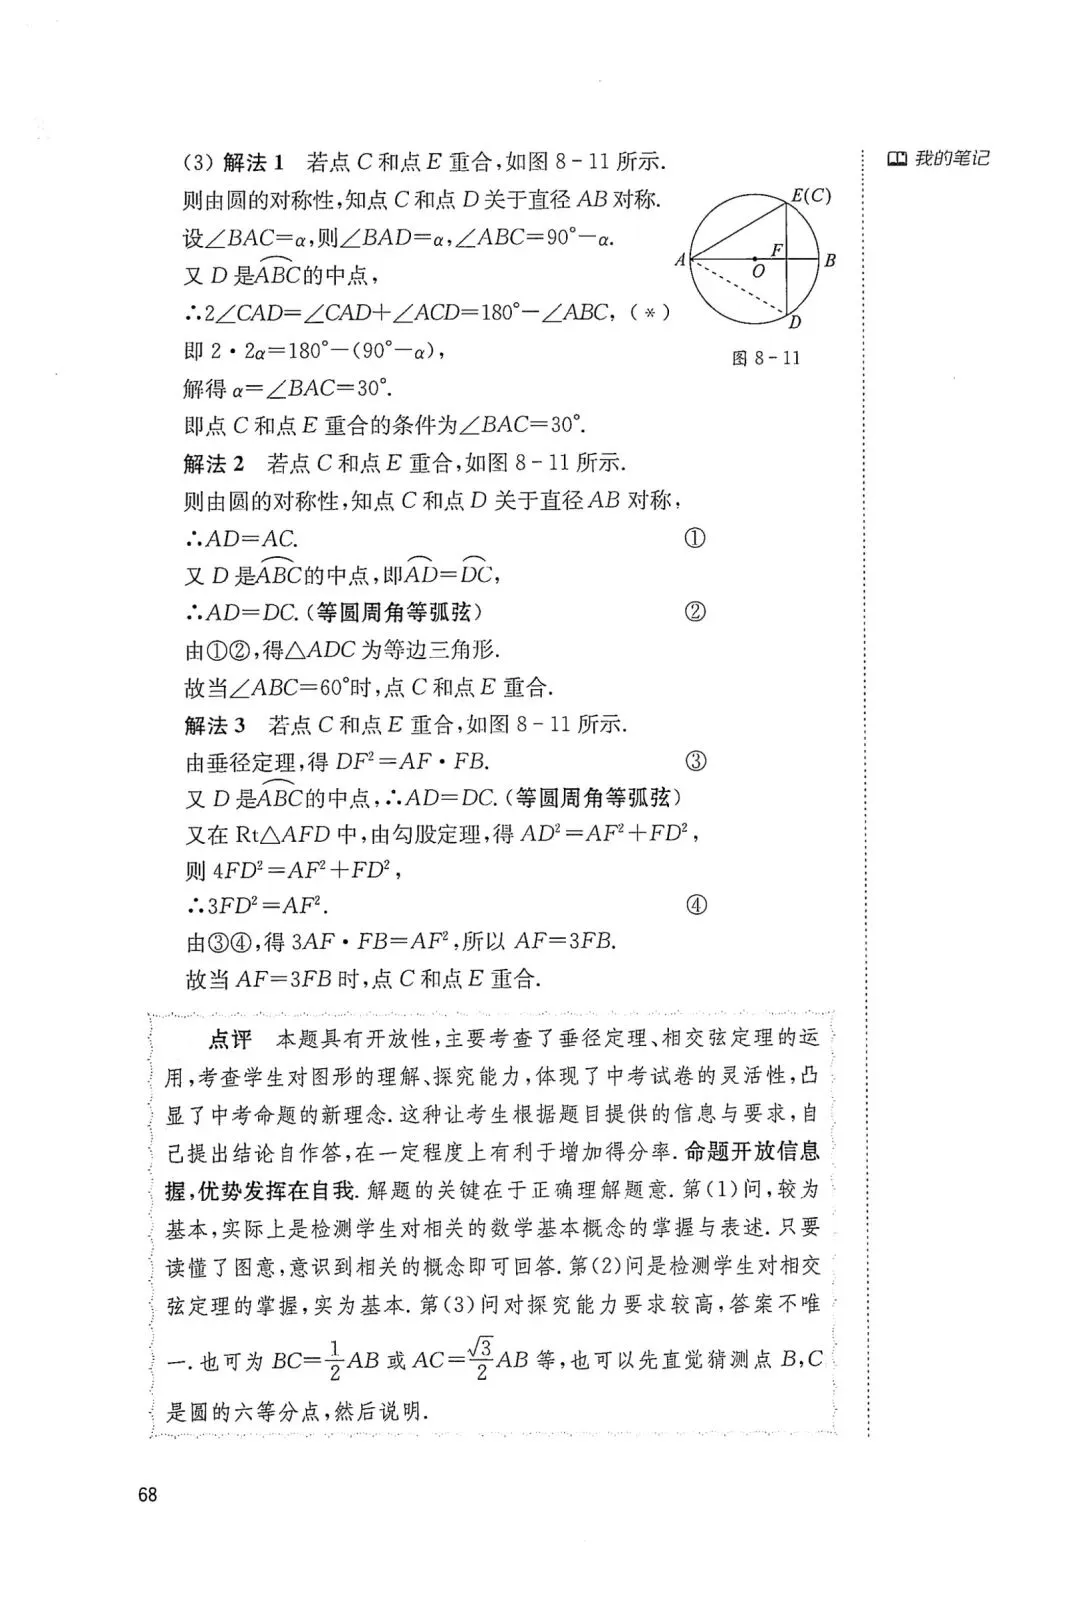 我的笔记
(3) 解法1 若点C和点E重合,如图8-11所示.
则由圆的对称性,知点C和点D关于直径AB对称.
设∠BAC=α,则∠BAD=α,∠ABC=90°-α.
又D是ABC的中点,
∴2∠CAD=∠CAD+∠ACD=180°-∠ABC, (*)
即2·2α=180°-(90°-α),
解得α=∠BAC=30°.
即点C和点E重合的条件为∠BAC=30°.
E(C)
A
F
O
B
D
图8-11
解法2 若点C和点E重合,如图8-11所示.
则由圆的对称性,知点C和点D关于直径AB对称,
∴AD=AC. ①
又D是ABC的中点,即AD=DC,
∴AD=DC.(等圆周角等弧弦) ②
由①②,得△ADC为等边三角形.
故当∠ABC=60°时,点C和点E重合.
解法3 若点C和点E重合,如图8-11所示.
由垂径定理,得DF²=AF·FB. ③
又D是ABC的中点,∴AD=DC.(等圆周角等弧弦)
又在Rt△AFD中,由勾股定理,得AD²=AF²+FD²,
则4FD²=AF²+FD²,
∴3FD²=AF². ④
由③④,得3AF·FB=AF²,所以AF=3FB.
故当AF=3FB时,点C和点E重合.
点评 本题具有开放性,主要考查了垂径定理、相交弦定理的运
用,考查学生对图形的理解、探究能力,体现了中考试卷的灵活性,凸
显了中考命题的新理念.这种让考生根据题目提供的信息与要求,自
己提出结论自作答,在一定程度上有利于增加得分率.命题开放信息
握,优势发挥在自我.解题的关键在于正确理解题意.第(1)问,较为
基本,实际上是检测学生对相关的数学基本概念的掌握与表述.只要
读懂了图意,意识到相关的概念即可回答.第(2)问是检测学生对相交
弦定理的掌握,实为基本.第(3)问对探究能力要求较高,答案不唯
一.也可为BC=1/2AB或AC=√3/2AB等,也可以先直觉猜测点B,C
是圆的六等分点,然后说明.
68